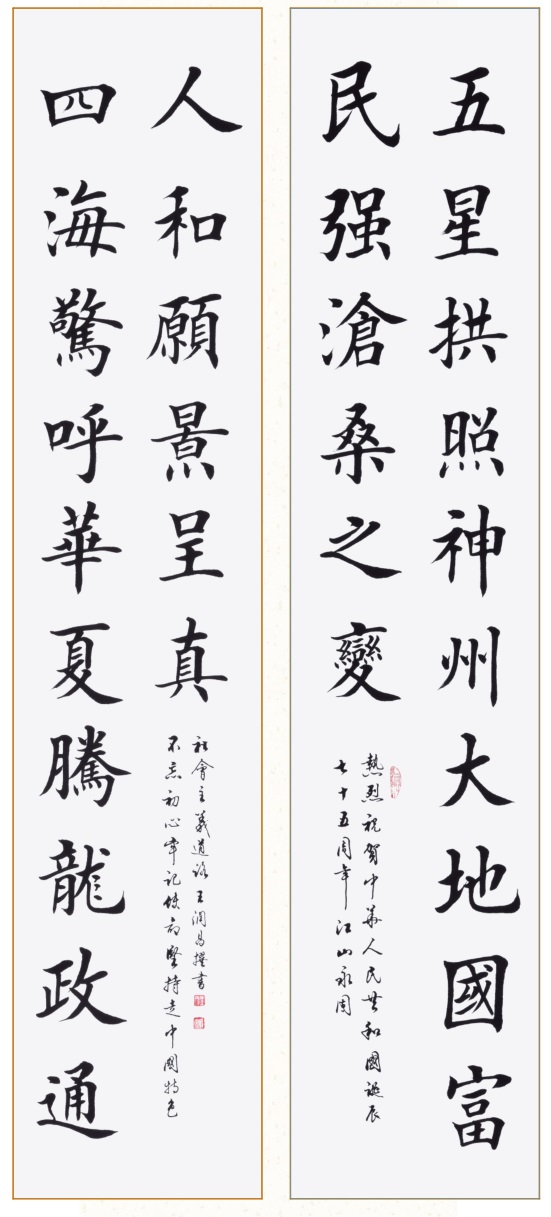 五星拱照神州大地國富
民强滄桑之變
熱烈祝賀中華人民共和國誕辰
七十五周年江山永固
四海驚呼華夏騰龍政通
人和願景呈真
不忘初心牢記使命堅持走中國特色
社會主義道路 王潤 撰書